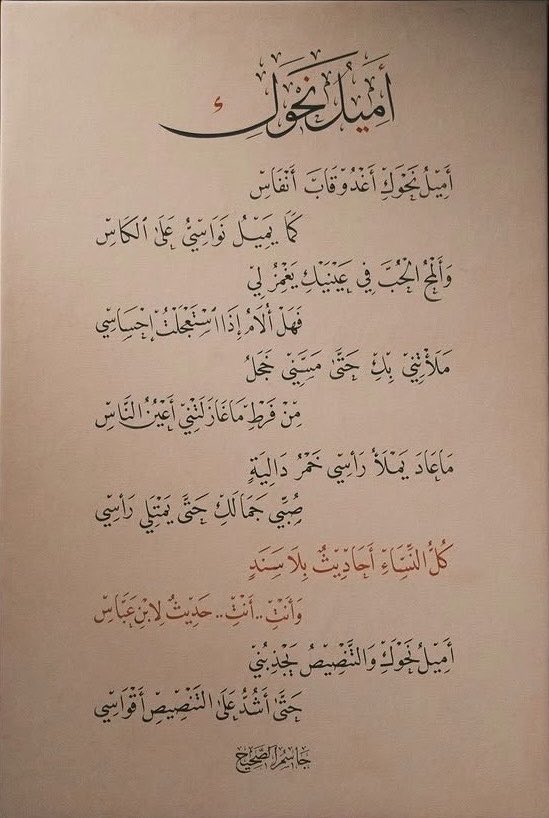 أَمِيلُ نَحْوَكِ
أَمِيلُ نَحْوَكِ أَغْدُو قَابَ أَنْفَاسِ
كَمَا يَمِيلُ نَوَاسِيٌّ عَلَى الكَاسِ
وَأَلْمَحُ الْحُبَّ فِي عَيْنَيْكِ يَغْمِزُ لِي
فَهَلْ أُلَامُ إِذَا اسْتَعْجَلْتُ إِحْسَاسِي
مَلَأْتِنِي بِكِ حَتَّى مَسَّنِي خَجَلُ
مِنْ فَرْطِ مَا غَازَلَتْنِي أَعْيُنُ النَّاسِ
مَا عَادَ يَمْلَأُ رَأْسِي خَمْرُ دَالِيَةٍ
صُبِّي جَمَالَكِ حَتَّى يَمْتَلِي رَأْسِي
كُلُّ النِّسَاءِ أَحَادِيثٌ بِلَا سَنَدٍ
وَأَنْتِ.. أَنْتِ.. حَدِيثٌ لِابْنِ عَبَّاسِ
أَمِيلُ نَحْوَكِ وَالتَّنْصِيصُ يَجْذِبُنِي
حَتَّى أَشُدُّ عَلَى التَّنْصِيصِ أَقْوَاسِي
جَاسِم الصَّحِيِّح